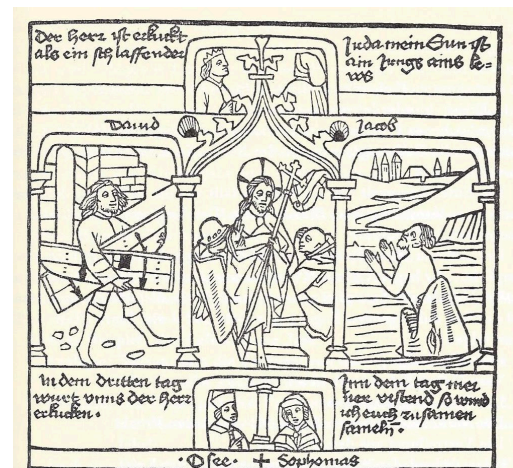 Der Herr ist erkuckt
als ein schlaffender
Juda mein Sun ist
ain Jungs ains le=
ws
Dauid
Jacob
In dem dritten tag
wurt vnns der herr
erkucken.
Inn dem tag mei
ner vistend so wird
ich euch zusamen
sameln.
Osee. + Sophonias